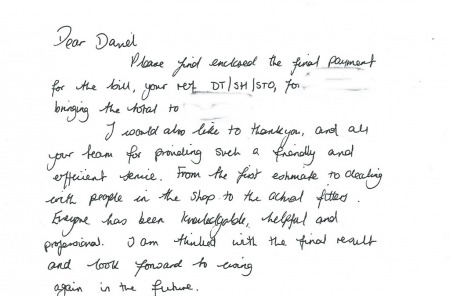 Dear Daniel
Please find enclosed the final payment
for the bill, your ref DT/SH/STO, for
bringing the total to
I would also like to thankyou, and all
your team for providing such a friendly and
efficient service. From the first estimate to dealing
with people in the shop to the actual fitters.
Everyone has been knowledgable, helpful and
professional. I am thrilled with the final result
and look forward to using
again in the future.